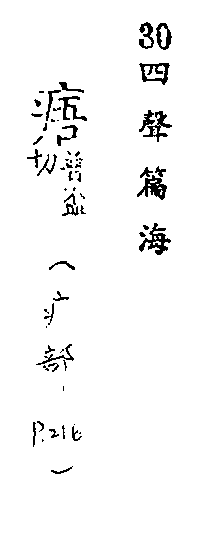 30四聲篇海
切
（疒部．P.216）